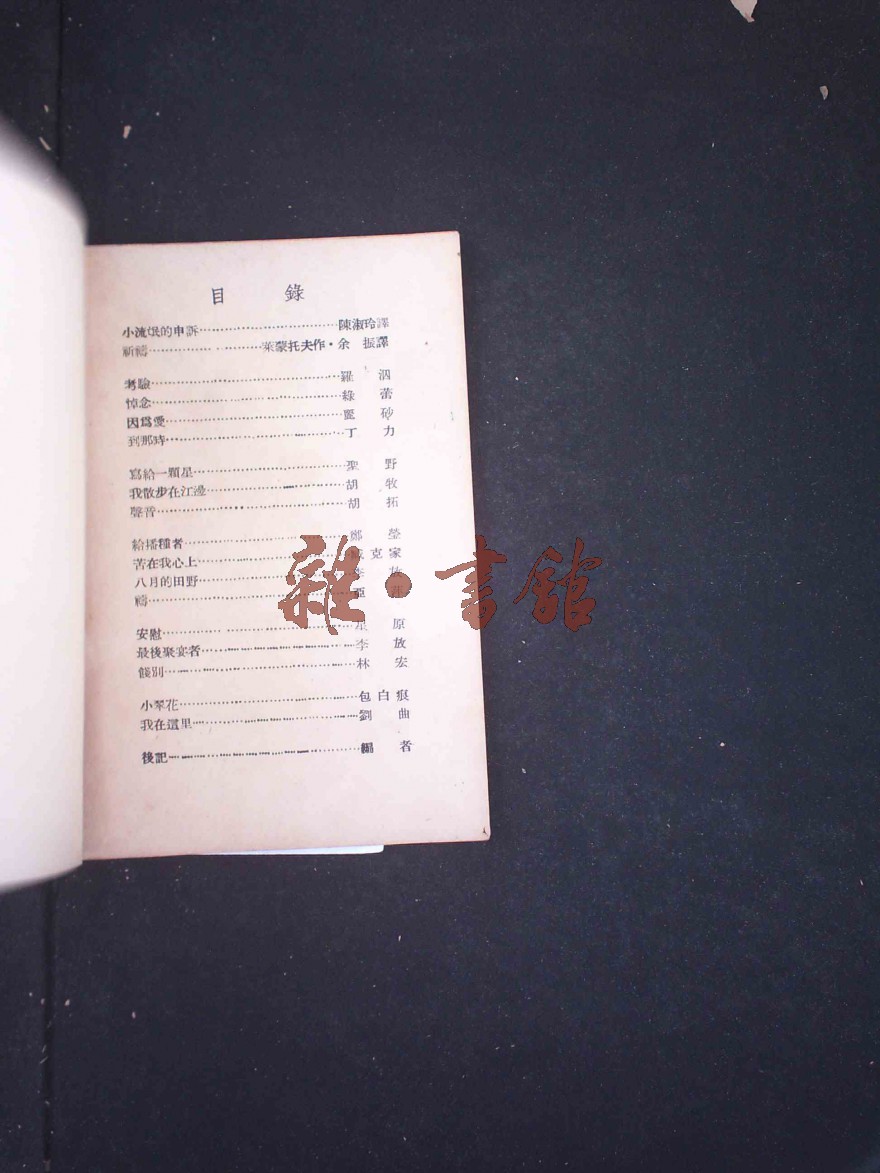 目錄
小流氓的申訴 陳淑玲譯
祈禱 萊蒙托夫作・余振譯
考驗 羅泗
悼念 綠蕾
因爲愛 麗砂
到那時 丁力
寫給一顆星 聖野
我散步在江邊 胡牧
聲音 胡拓
給播種者 鄭瑩
苦在我心上 克家
八月的田野
禱
安慰 原
最後聚宴者 李放
餞別 林宏
小翠花 包白痕
我在這里 劉曲
後記 編者
雜・書館